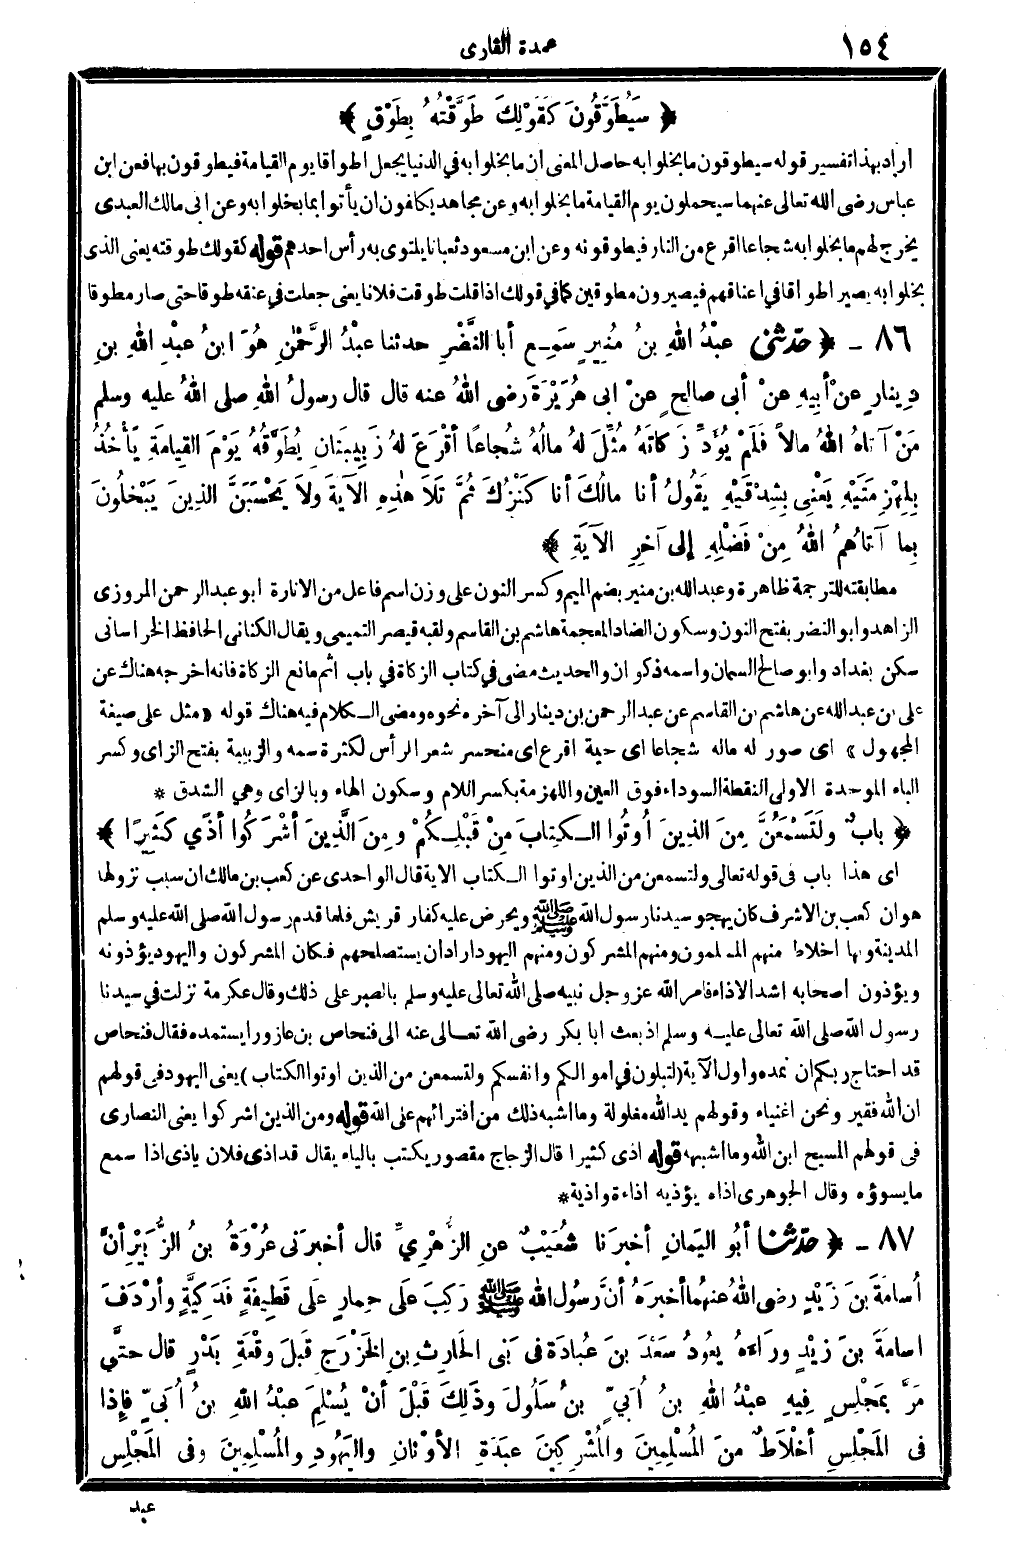 ١٥٤
عمدة القارى
﴿ سَيُطَوَّقُونَ كَقَوْلِكَ طَوَّقْتُهُ بِطَوْقٍ ﴾
أراد بهذا تفسير قوله سيطوقون ما بخلوا به حاصل المعنى أن ما بخلوا به في الدنيا يجعل اطواقا يوم القيامة فيطوقون بها فعن ابن
عباس رضى الله تعالى عنهما سيحملون يوم القيامة ما بخلوا به وعن مجاهد يكلفون ان يأتوا بما بخلوا به وعن ابى مالك العبدى
يخرج لهم ما بخلوا به شجاعا اقرع من النار فيطوقونه وعن ابن مسعود ثعبانا يلتوى به رأس احدهم قوله كقولك طوقته يعنى الذى
بخلوا به يصير اطواقا في اعناقهم فيصيرون مطوقين كما في قولك اذا قلت طوقت فلانا يعنى جعلت في عنقه طوقا حتى صار مطوقا
٨٦ - ﴿ حدّثنى عبْدُ اللهِ بنُ مُنِيرٍ سَمِعَ أبا النَّضْرِ حدثنا عبْدُ الرَّحْمٰنِ هُوَ ابنُ عبْدِ اللهِ بنِ
دِينارٍ عنْ أبيهِ عنْ أبى صالِحٍ عنْ ابى هُرَيْرَةَ رضى اللهُ عنه قال قال رسولُ اللهِ صلى اللهُ عليه وسلم
مَنْ آتاهُ اللهُ مالاً فَلَمْ يُؤَدِّ زَكاتَهُ مُثِّلَ لهُ مالُهُ شُجاعًا أقْرَعَ لهُ زَبِيبَتانِ يُطَوَّقُهُ يَوْمَ القِيامَةِ يَأْخُذُ
بِلِهْزِمَتَيْهِ يَعْنِى بِشِدْقَيْهِ يَقُولُ أنا مالُكَ أنا كَنْزُكَ ثُمَّ تَلاَ هٰذِهِ الآيَةَ ولاَ يَحْسَبَنَّ الذِينَ يَبْخَلُونَ
بِما آتاهُمُ اللهُ مِنْ فَضْلِهِ إلى آخِرِ الآيَةِ ﴾
مطابقته للترجمة ظاهرة وعبد الله بن منير بضم الميم وكسر النون على وزن اسم فاعل من الانارة ابو عبد الرحمن المروزى
الزاهد وابو النضر بفتح النون وسكون الضاد المعجمة هاشم بن القاسم ولقبه قيصر التميمى ويقال الكنانى الحافظ الخراسانى
سكن بغداد وابو صالح السمان واسمه ذكوان والحديث مضى في كتاب الزكاة في باب اثم مانع الزكاة فانه اخرجه هناك عن
على بن عبد الله عن هاشم بن القاسم عن عبد الرحمن بن دينار الى آخره نحوه ومضى الكلام فيه هناك قوله « مثل على صيغة
المجهول » اى صور له ماله شجاعا اى حية اقرع اى منحسر شعر الرأس لكثرة سمه والزبيبة بفتح الزاى وكسر
الباء الموحدة الاولى النقطة السوداء فوق العين واللهزمة بكسر اللام وسكون الهاء وبالزاى وهي الشدق *
﴿ بابٌ ولَتَسْمَعُنَّ مِنَ الذِينَ أُوتُوا الكِتابَ مِنْ قَبْلِكُمْ ومِنَ الَّذِينَ أشْرَكُوا أذًى كَثِيرًا ﴾
اى هذا باب فى قوله تعالى ولتسمعن من الذين اوتوا الكتاب الاية قال الواحدى عن كعب بن مالك ان سبب نزولها
هو ان كعب بن الاشرف كان يهجو سيدنا رسول الله ﷺ ويحرض عليه كفار قريش فلما قدم رسول الله صلى الله عليه وسلم
المدينة وبها اخلاط منهم المسلمون ومنهم المشركون ومنهم اليهود اراد ان يستصلحهم فكان المشركون واليهود يؤذونه
ويؤذون اصحابه اشد الاذاء فامر الله عز وجل نبيه صلى الله تعالى عليه وسلم بالصبر على ذلك وقال عكرمة نزلت في سيدنا
رسول الله صلى الله تعالى عليه وسلم اذ بعث ابا بكر رضى الله تعالى عنه الى فنحاص بن عازورا يستمده فقال فنحاص
قد احتاج ربكم ان نمده واول الآية (لتبلون في أموالكم وانفسكم ولتسمعن من الذين اوتوا الكتاب) يعنى اليهود فى قولهم
ان الله فقير ونحن اغنياء وقولهم يد الله مغلولة وما اشبه ذلك من افترائهم على الله قوله ومن الذين اشركوا يعنى النصارى
فى قولهم المسيح ابن الله وما اشبهه قوله اذى كثيرا قال الزجاج مقصور يكتب بالياء يقال قد اذى فلان ياذى اذا سمع
مايسوؤه وقال الجوهرى اذاه يؤذيه اذاءة واذية *
٨٧ - ﴿ حدّثنا أبُو اليَمانِ أخبرَنا شُعَيْبٌ عنِ الزُّهْرِيِّ قال أخبرَنى عُرْوَةُ بنُ الزُّبَيْرِ أنَّ
أُسامَةَ بنَ زَيْدٍ رضى اللهُ عنهُما أخبَرَهُ أنَّ رسُولَ اللهِ ﷺ رَكِبَ عَلَى حِمارٍ عَلَى قَطِيفَةٍ فَدَكِيَّةٍ وأرْدَفَ
اسامَةَ بنَ زَيْدٍ ورَاءَهُ يعُودُ سَعْدَ بنَ عُبادَةَ فى بَنى الحارِثِ بنِ الخَزْرَجِ قَبْلَ وقْعَةِ بَدْرٍ قال حتَّي
مَرَّ بِمَجْلِسٍ فِيهِ عبْدُ اللهِ بنُ أُبَيٍّ بنُ سَلُولَ وذَلِكَ قَبْلَ أنْ يُسْلِمَ عبْدُ اللهِ بنُ أُبَيٍّ فإِذا
فى المَجْلِسِ أخْلاَطٌ منَ المُسْلِمِينَ والمُشْرِكِينَ عبَدَةِ الأوْثانِ واليَهُودِ والمُسْلِمِينَ وفى المَجْلِسِ
عبد